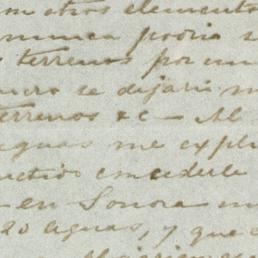 otros elemento
nunca podria s
terrenos por un
se dejaria
terrenos &c — Al
aguas me expli
concederle
en Sonora
20 aguas, y que